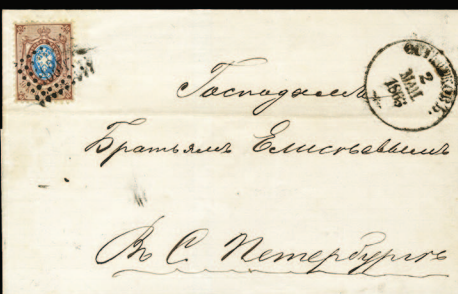 2
МАЯ
1865
Господамъ
Братьямъ Елисѣевымъ
Въ С. Петербургѣ